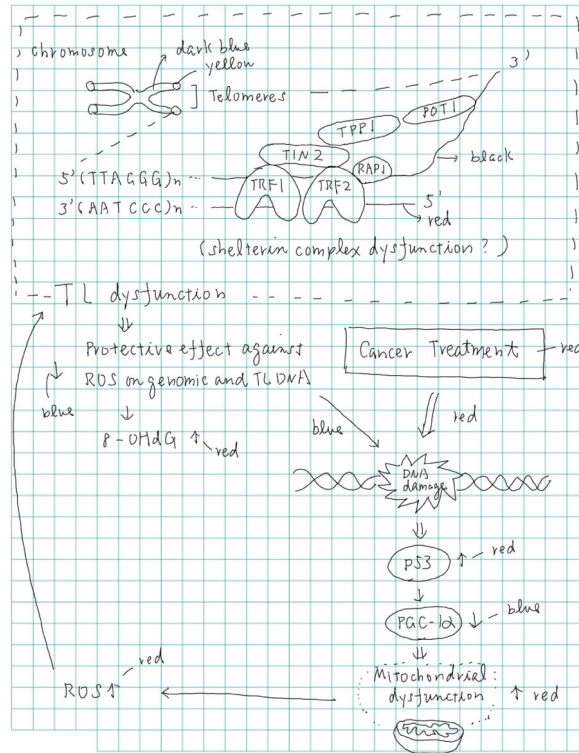 chromosome
dark blue
yellow
] Telomeres
3'
POT1
TPP1
TIN2
RAP1
→ black
5'(TTAGGG)n
TRF1
TRF2
3'(AATCCC)n
5'
red
(shelterin complex dysfunction?)
TL dysfunction
Protective effect against
ROS on genomic and TL DNA
blue
8-OHdG ↑ red
Cancer Treatment - red
blue
red
DNA
damage
P53 ↑ - red
PGC-1α ↓ - blue
Mitochondrial
dysfunction ↑ red
ROS↑ red